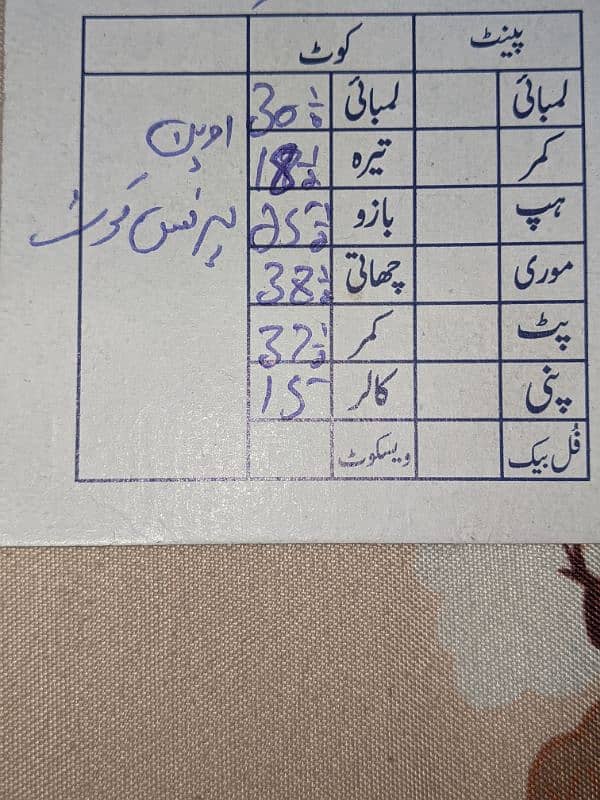 پینٹ کوٹ
لمبائی لمبائی 30 1/2
کمر تیرہ 18 1/2
ہپ بازو 25 1/2
موری چھاتی 38 1/2
پٹ کمر 37 1/2
پنی کالر 15
فُل بیک ویسکوٹ
اوپن
پرنس کوٹ